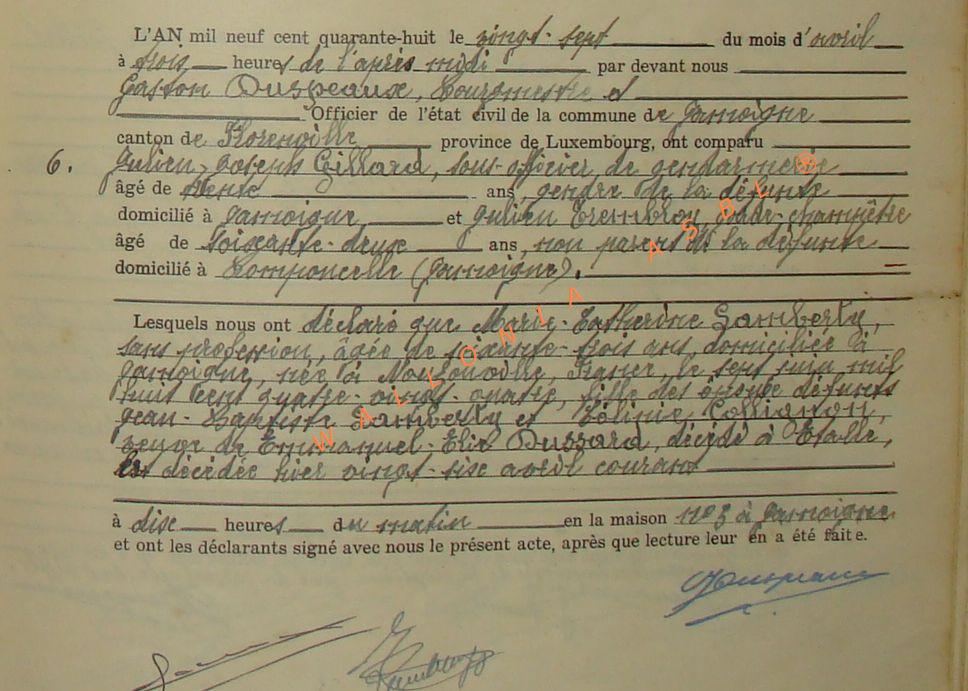 L'AN mil neuf cent quarante-huit le vingt-sept du mois d'avril
à trois heures de l'après midi par devant nous
Gaston Duspeaux, Bourgmestre et
Officier de l'état civil de la commune de Jamoigne
canton de Florenville province de Luxembourg, ont comparu
6. Julien, Joseph Gillard, sous-officier de gendarmerie
âgé de trente ans, gendre de la défunte
domicilié à Jamoigne et Julien Trembloy, garde-champêtre
âgé de soixante-deux ans, non parent de la défunte
domicilié à Romponcelle (Jamoigne).
Lesquels nous ont déclaré que Marie-Catherine Lamberty,
sans profession, âgée de soixante-trois ans domiciliée à
Jamoigne, née à France, le sept juin mil
huit cent quatre-vingt-quatre, fille des époux défunts
Jean-Baptiste Lamberty et Collignon,
veuve de Emmanuel-Elie Dussard, décédé à Etalle,
est décédée hier vingt-six avril courant
à dix heures du matin en la maison n° 3 à Jamoigne
et ont les déclarants signé avec nous le présent acte, après que lecture leur en a été faite.
WALLONIA ASBL